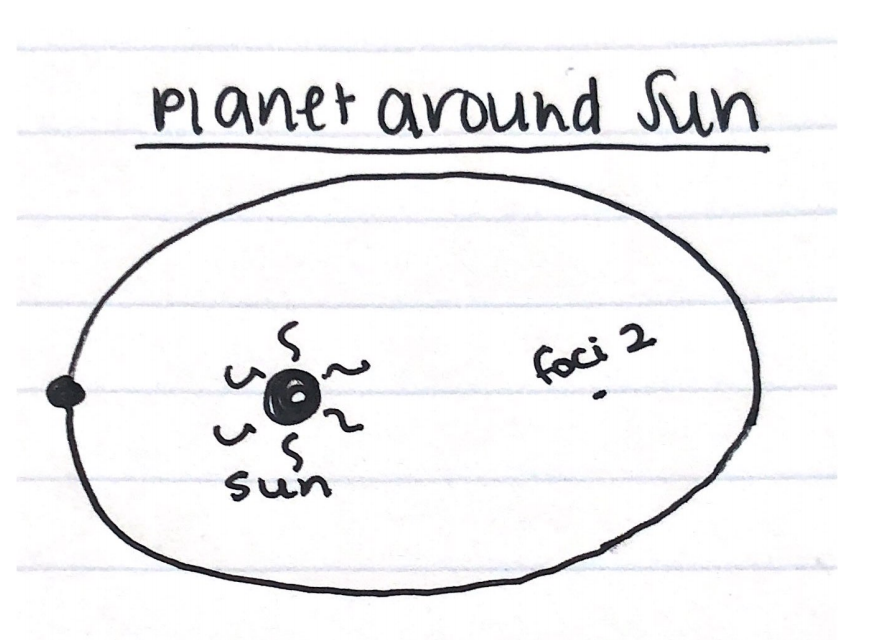 Planet around Sun
foci 2
sun